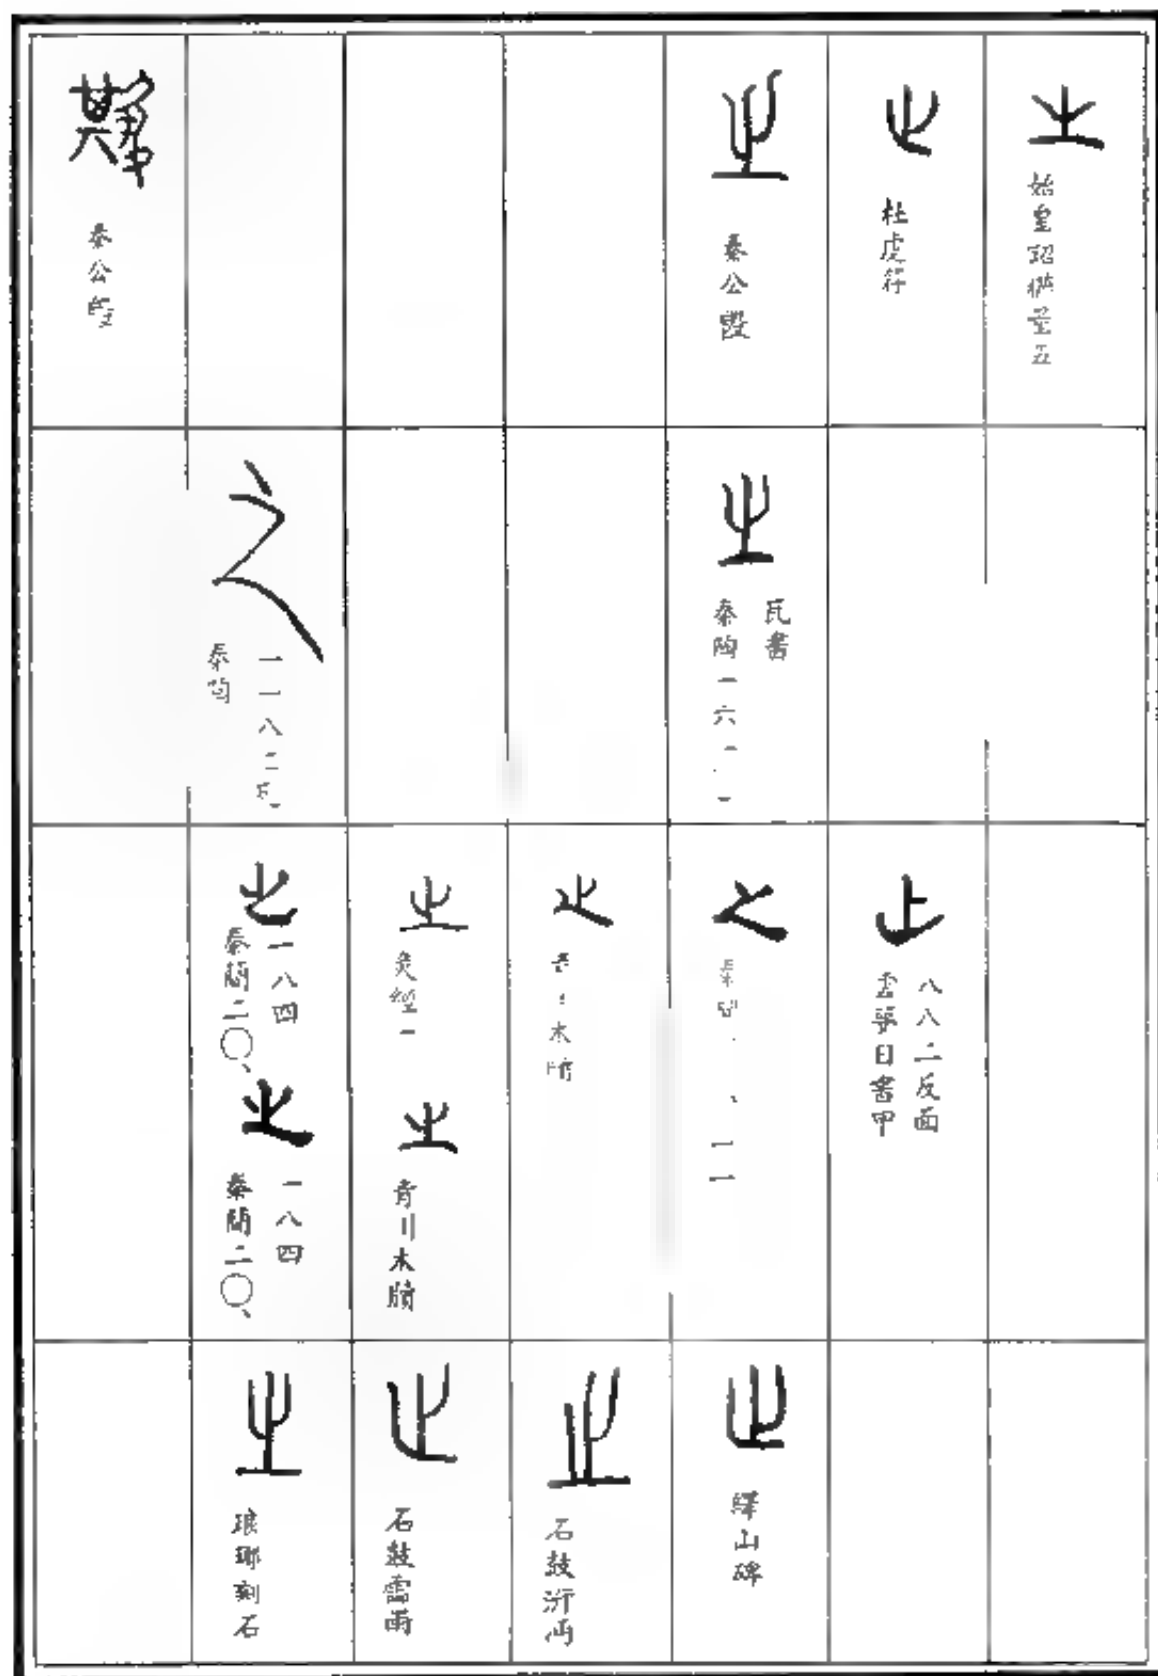 之
始皇詔橢量五
之
杜虎符
之
秦公𣪘
秦公
之
瓦書
秦陶一六
之
一一八二
秦陶
之
八八二反面
雲夢日書甲
之
之
木牘
之
灸經一
之
青川木牘
之
一八四
秦簡二〇、
之
一八四
秦簡二〇、
之
繹山碑
之
石鼓汧沔
之
石鼓霝雨
之
琅琊刻石